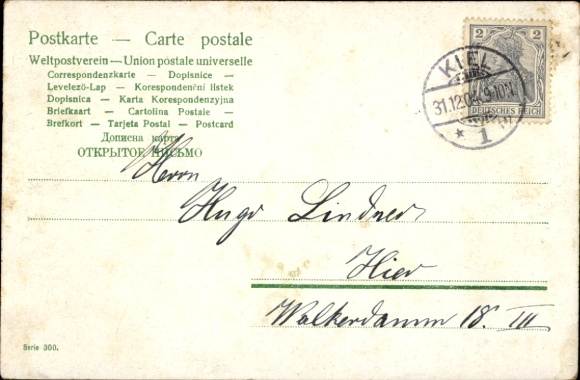 Postkarte — Carte postale
Weltpostverein — Union postale universelle
Correspondenzkarte — Dopisnice —
Levelező-Lap — Korespondenční lístek
Dopisnica — Karta Korespondenzyjna
Briefkaart — Cartolina Postale —
Brefkort — Tarjeta Postal — Postcard
Дописна карта
ОТКРЫТОЕ ПИСЬМО
2 2
DEUTSCHES REICH
KIEL
31.12.0
9-10N
* 1
Herrn
Hugo Lindner
Hier
Walkerdamm 18. III
Serie 300.